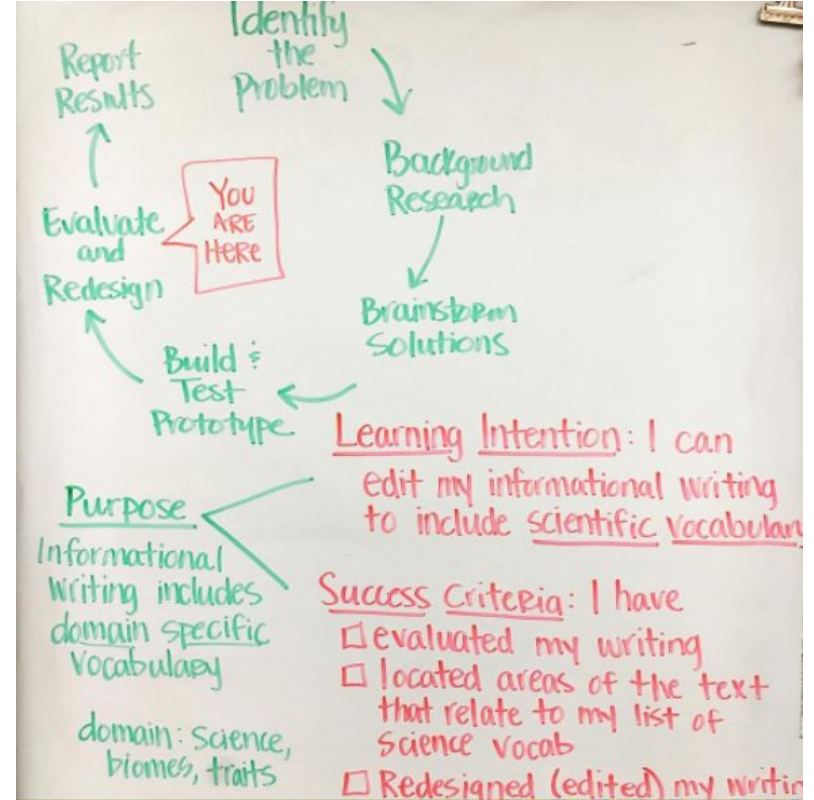 Identify
the
Problem
Background
Research
Brainstorm
Solutions
Build &
Test
Prototype
Evaluate
and
Redesign
YOU
ARE
HERE
Report
Results
Purpose
Informational
Writing includes
domain specific
Vocabulary
domain: science,
biomes, traits
Learning Intention: I can
edit my informational writing
to include scientific vocabular
Success Criteria: I have
evaluated my writing
located areas of the text
that relate to my list of
science vocab
Redesigned (edited) my writin